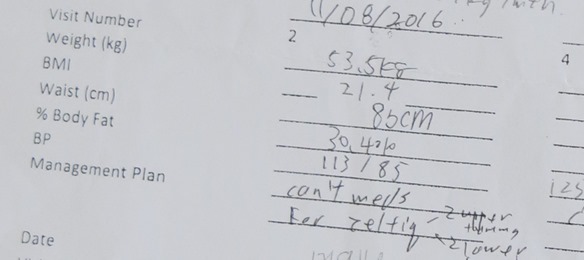 11/08/2016
Visit Number 2 4
Weight (kg) 53.5kg
BMI 21.4
Waist (cm) 85cm
% Body Fat 30.4%
BP 113/85
Management Plan can't meds
For
2 lower
Date